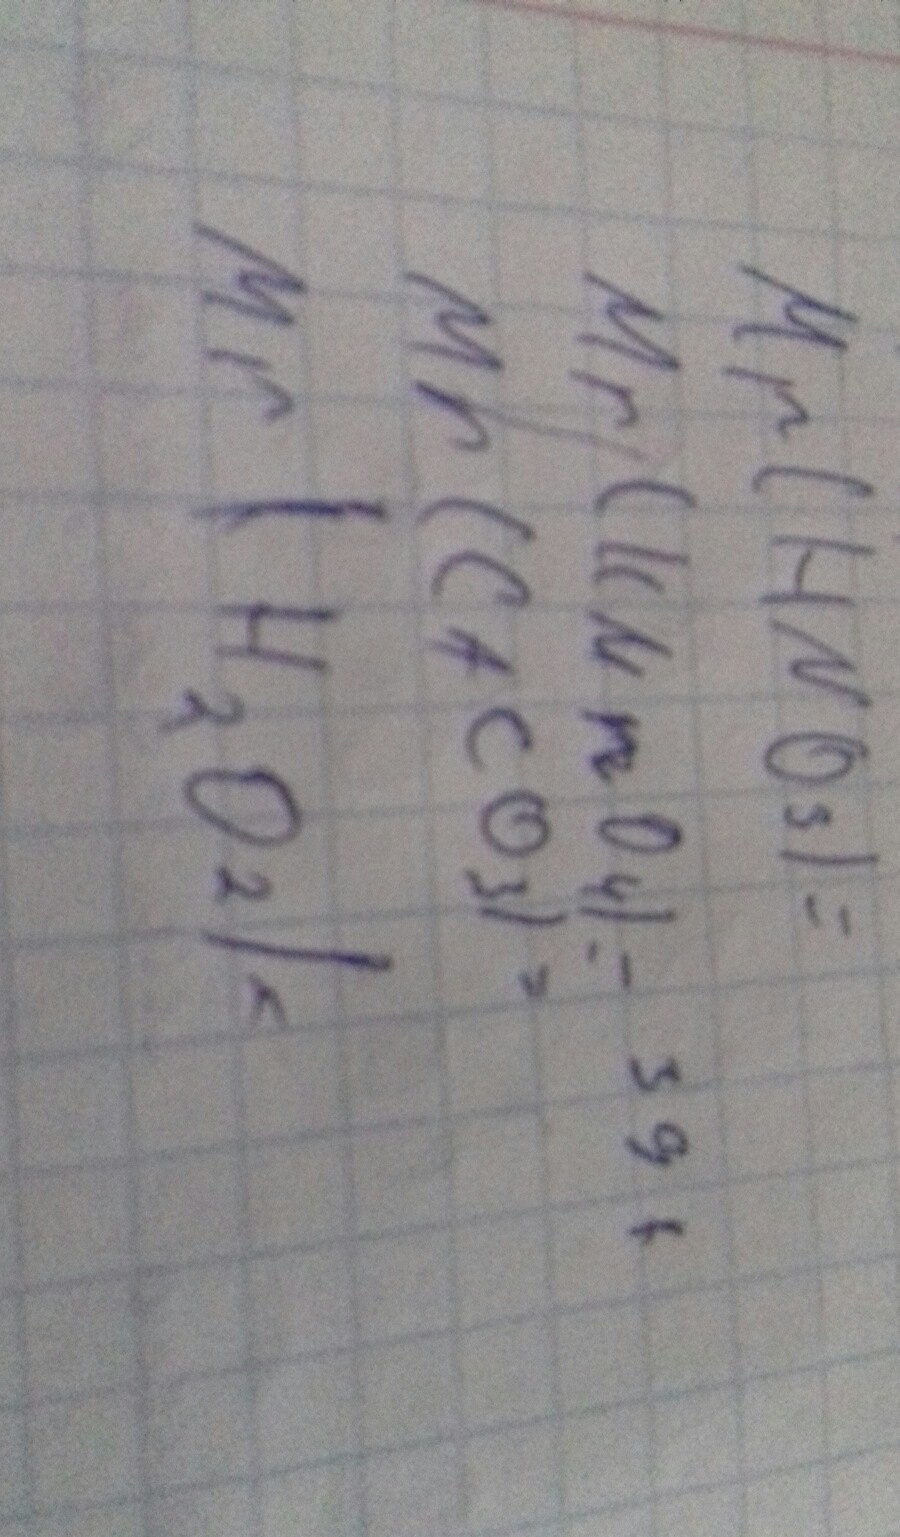 Mr(HNO3)=
Mr(KMnO4)= 39+
Mr(CaCO3)=
Mr(H2O2)=